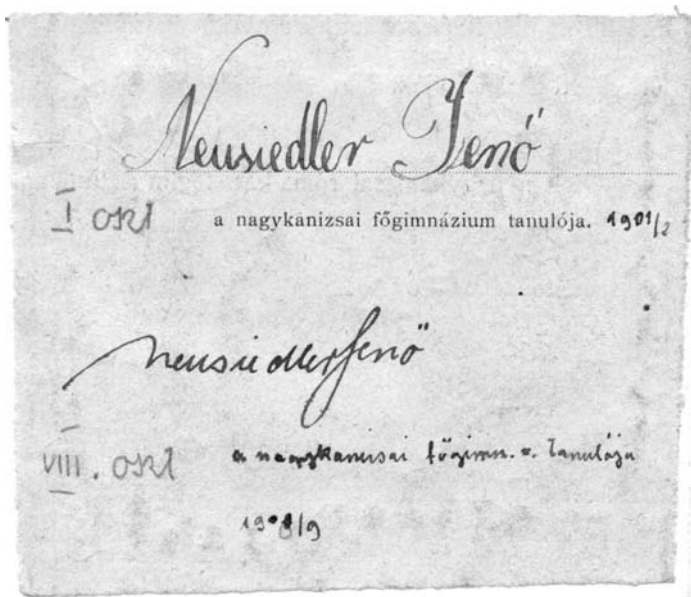 Neusiedler Jenő
I oszl a nagykanizsai főgimnázium tanulója. 1901/2
Neusiedler Jenő
VIII. oszl a nagykanizsai főgimn. tanulója
1908/9